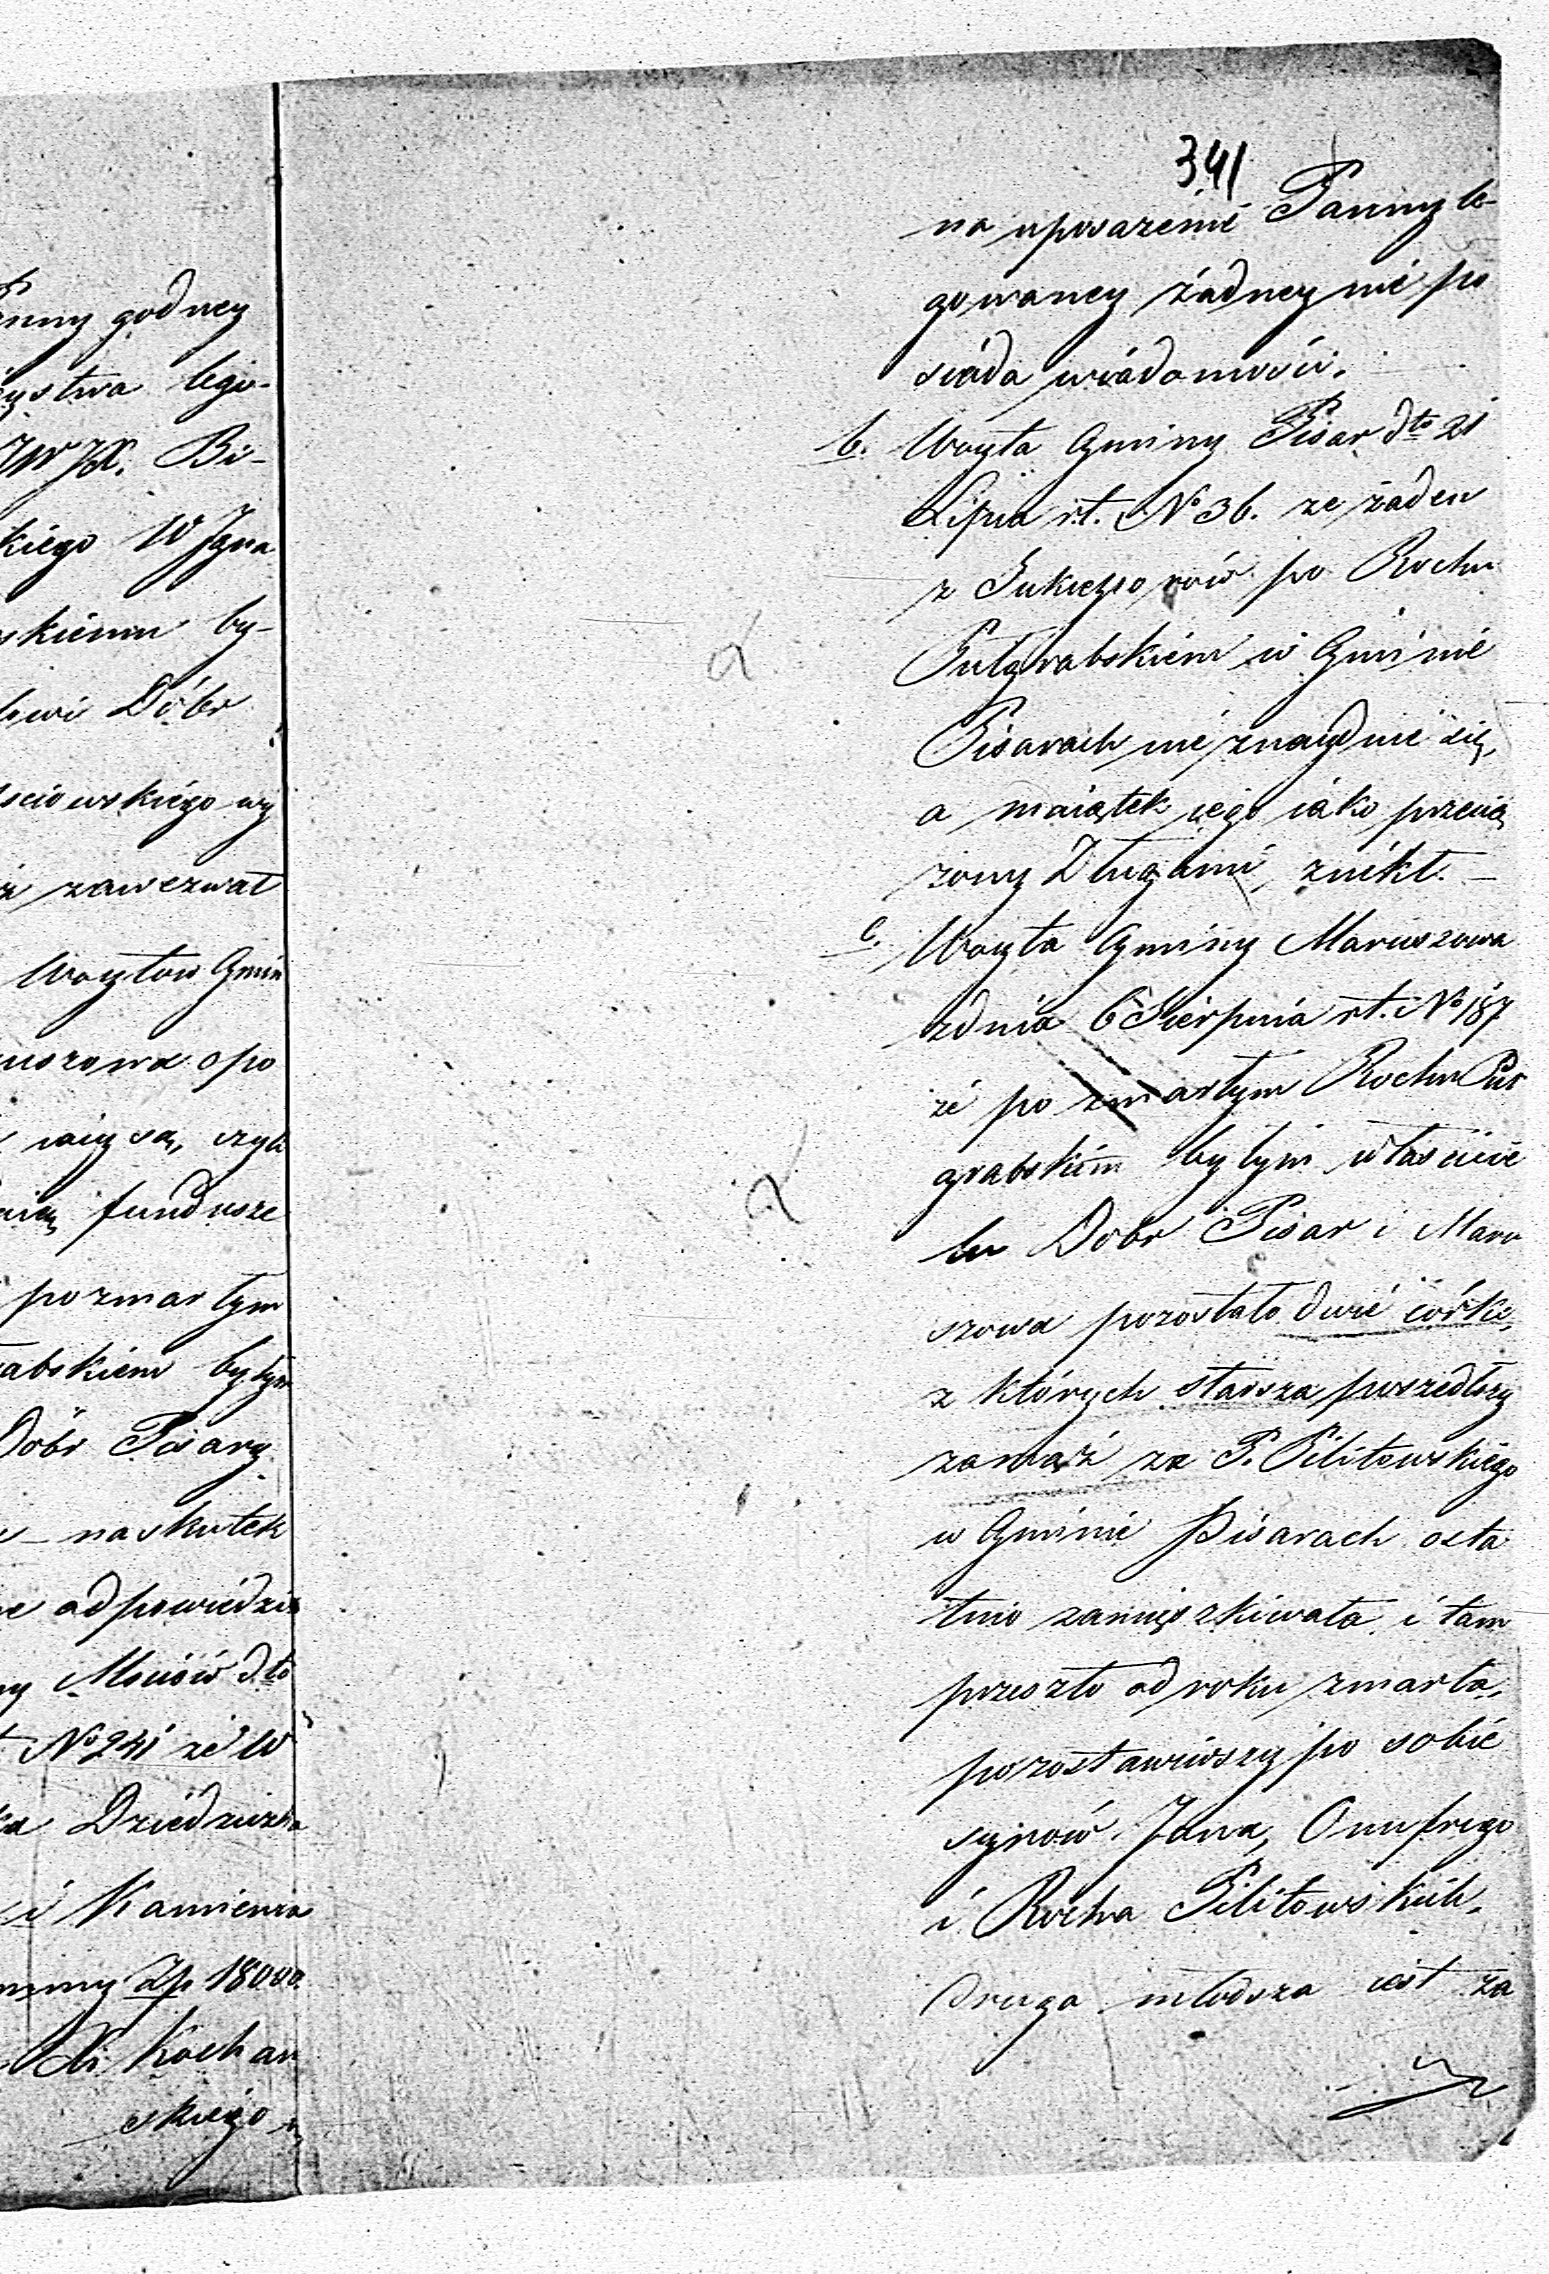 enny godney
ństwa legu-
JWJX. Bi-
kiego W Igna
skiemu by-
lowi Dóbr
sciowskiego wy
ż zawezwał
Woytów Gmin
uszowa o po
iaiy są, czyli
fundusze
po zmarłym
abskiem byłym
Dóbr Pisary
na skutek
e odpowiedzi
ny Mniów dto
No 241 że W
ka Dziedziczka
i Kamienia
mmy Zp 18000.
Kochan
skiego
341
na uposażenie Panny le-
gowaney żadney nie po
siada wiadomości.
b. Woyta Gminy Pisar dto 21
Lipca r.t. No 36. że żaden
z Sukcessorów po Rochu
Pułgrabskiem w Gminie
Pisarach nie znayduie się,
a maiątek iego iako przecią
żony Długami, znikł. —
c. Woyta Gminy Maruszowa
z dnia 6 Sierpnia r.t. No 187
że po zmarłym Rochu Puł
grabskim byłym właścicie
lu Dóbr Pisar i Maru
szowa pozostało dwie córki,
z których starsza poszedłszy
zamąż za P. Pilitowskiego
w Gminie Pisarach osta
tnio zamięszkiwała i tam
przeszło od roku zmarła,
pozostawiwszy po sobie
synów Jana, Onufrego
i Rocha Pilitowskich,
Druga młodsza iest za